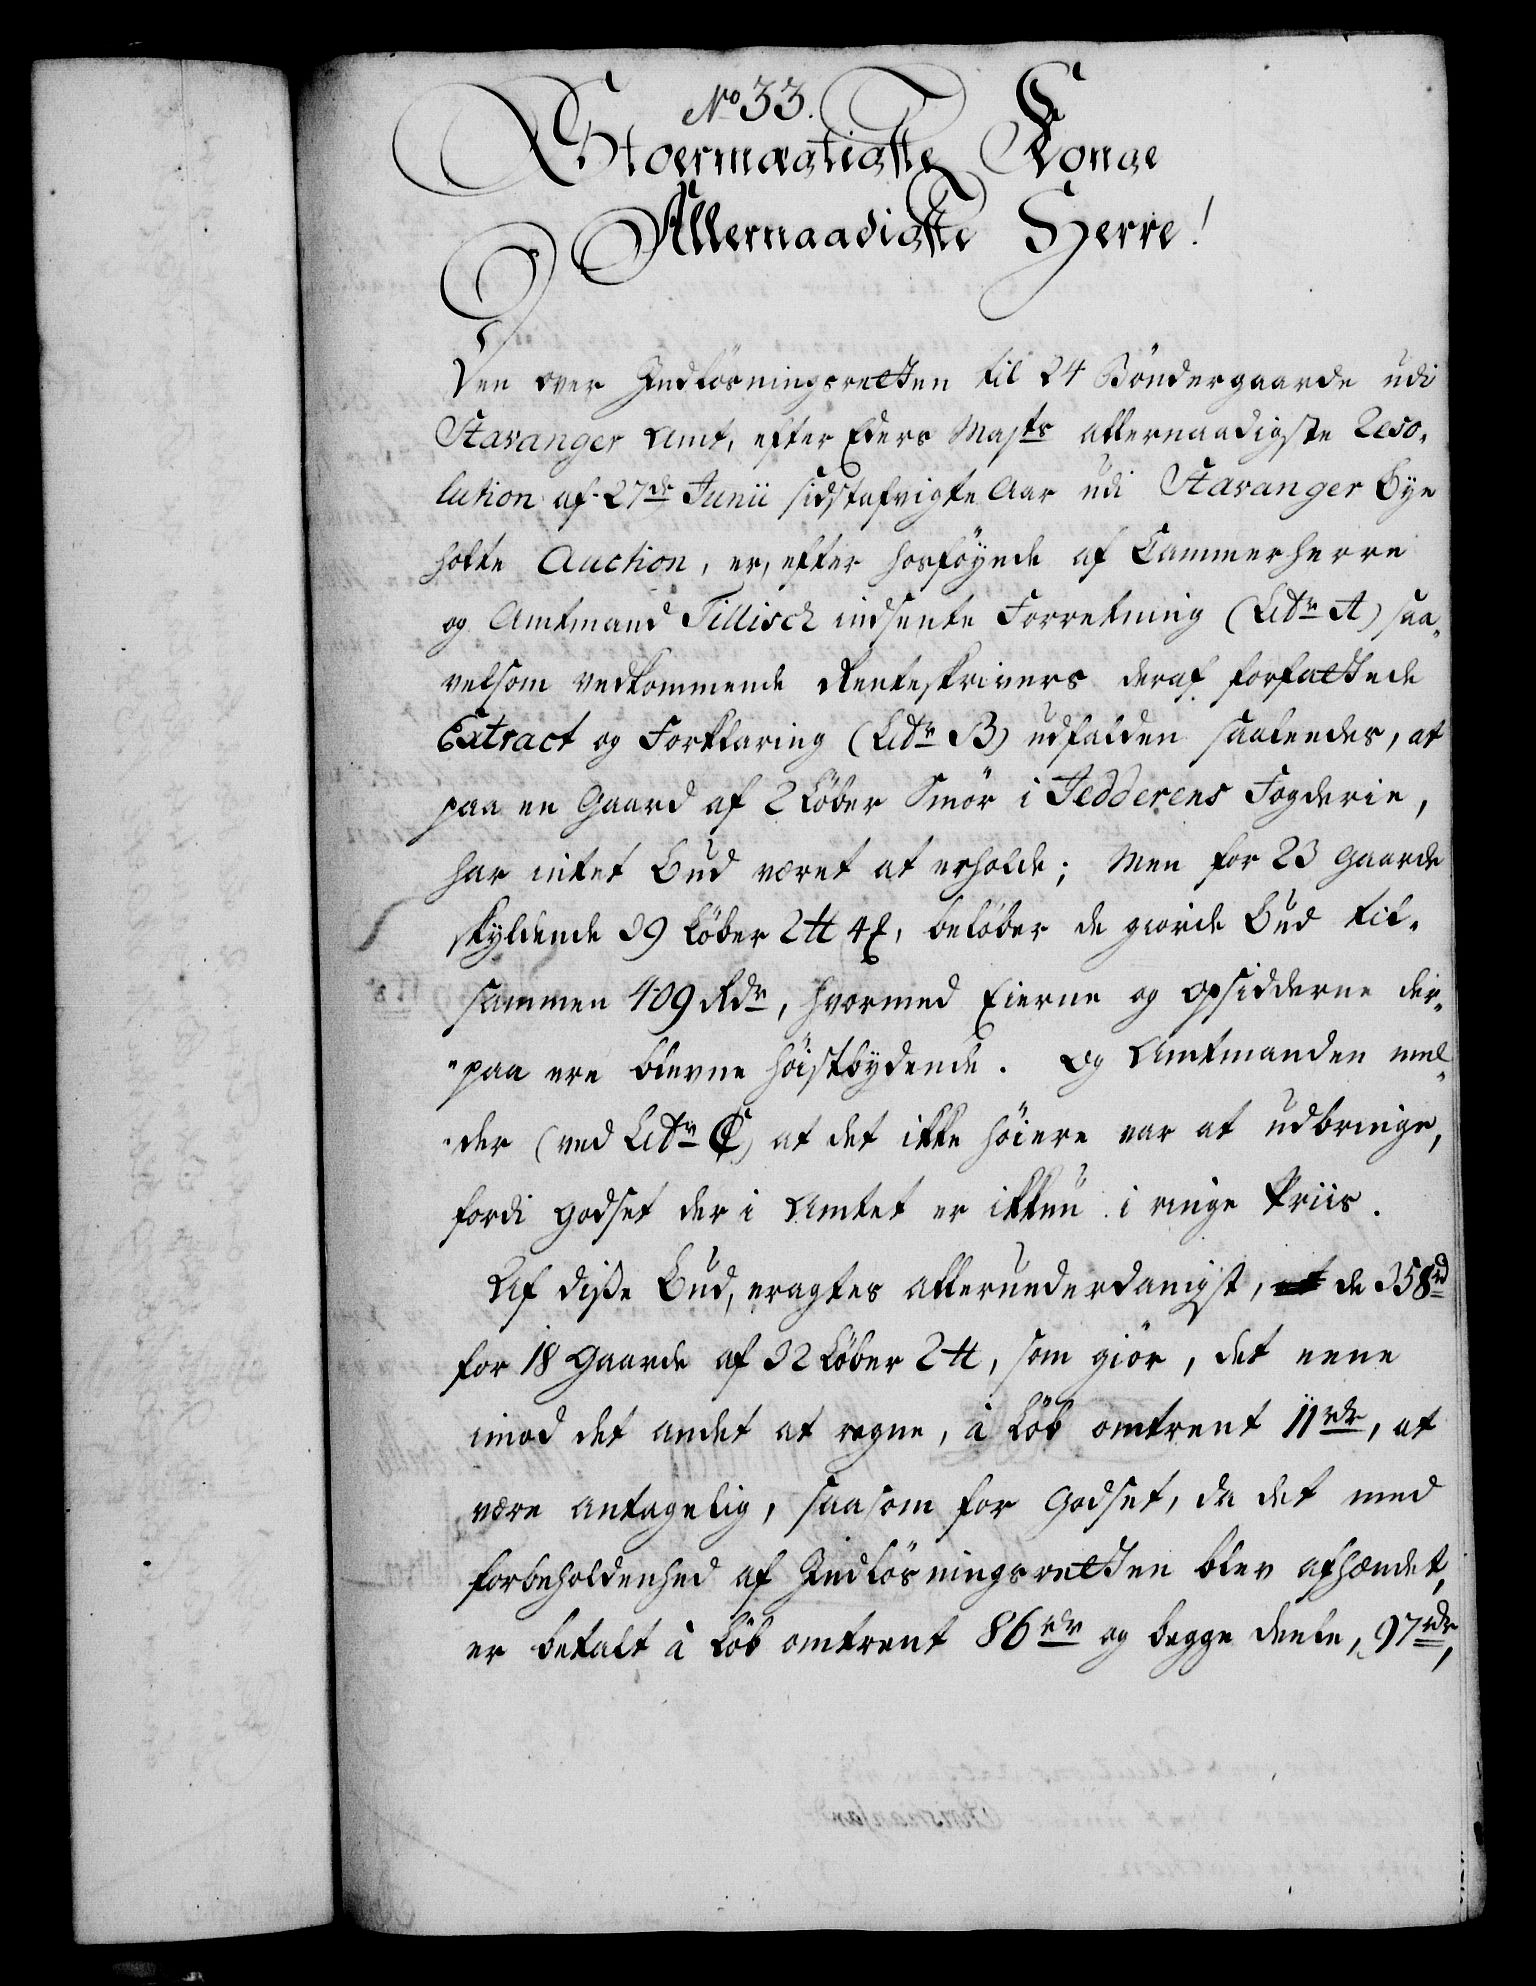 No 33.
Stoermægtigste Konge
Allernaadigste Herre!
Den over Indløsningsretten til 24 Bøndergaarde udi
Stavanger Amt, efter Eders Majts allernaadigste Reso-
lution af 27de Junii sidstafvigte Aar udi Stavanger Bye
holte Auction, er, efter hosføyede af Cammerherre
og Amtmand Tillisch indsente Forretning (Litr A) saa-
velsom vedkommende Renteskrivers deraf forfattede
Extract og Forklaring (Litr B) udfalden saaledes, at
paa en Gaard af 2 Løber Smør i Jedderens Fogderie,
har intet Bud været at erholde; Men for 23 Gaarde
skyldende 39 Løber 2 ℔ 4 , beløber de giorde Bud til-
sammen 409 Rdr, hvormed Eierne og Opsidderne der-
paa ere blevne høistbydende. Og Amtmanden mel-
der (ved Litr C) at det ikke høiere var at udbringe,
fordi Godset der i Amtet er ikkun i ringe Priis.
Af disse Bud, eragtes allerunderdanigst, de 358 rd
for 18 Gaarde af 32 Løber 2 ℔, som giør, det eene
imod det andet at regne, à Løb omtrent 11 rdr, at
være antagelig, saasom for Godset, da det med
forbeholdenhed af Indløsningsretten blev afhændet,
er betalt à Løb omtrent 86 rdr og begge deele, 97 rdr,